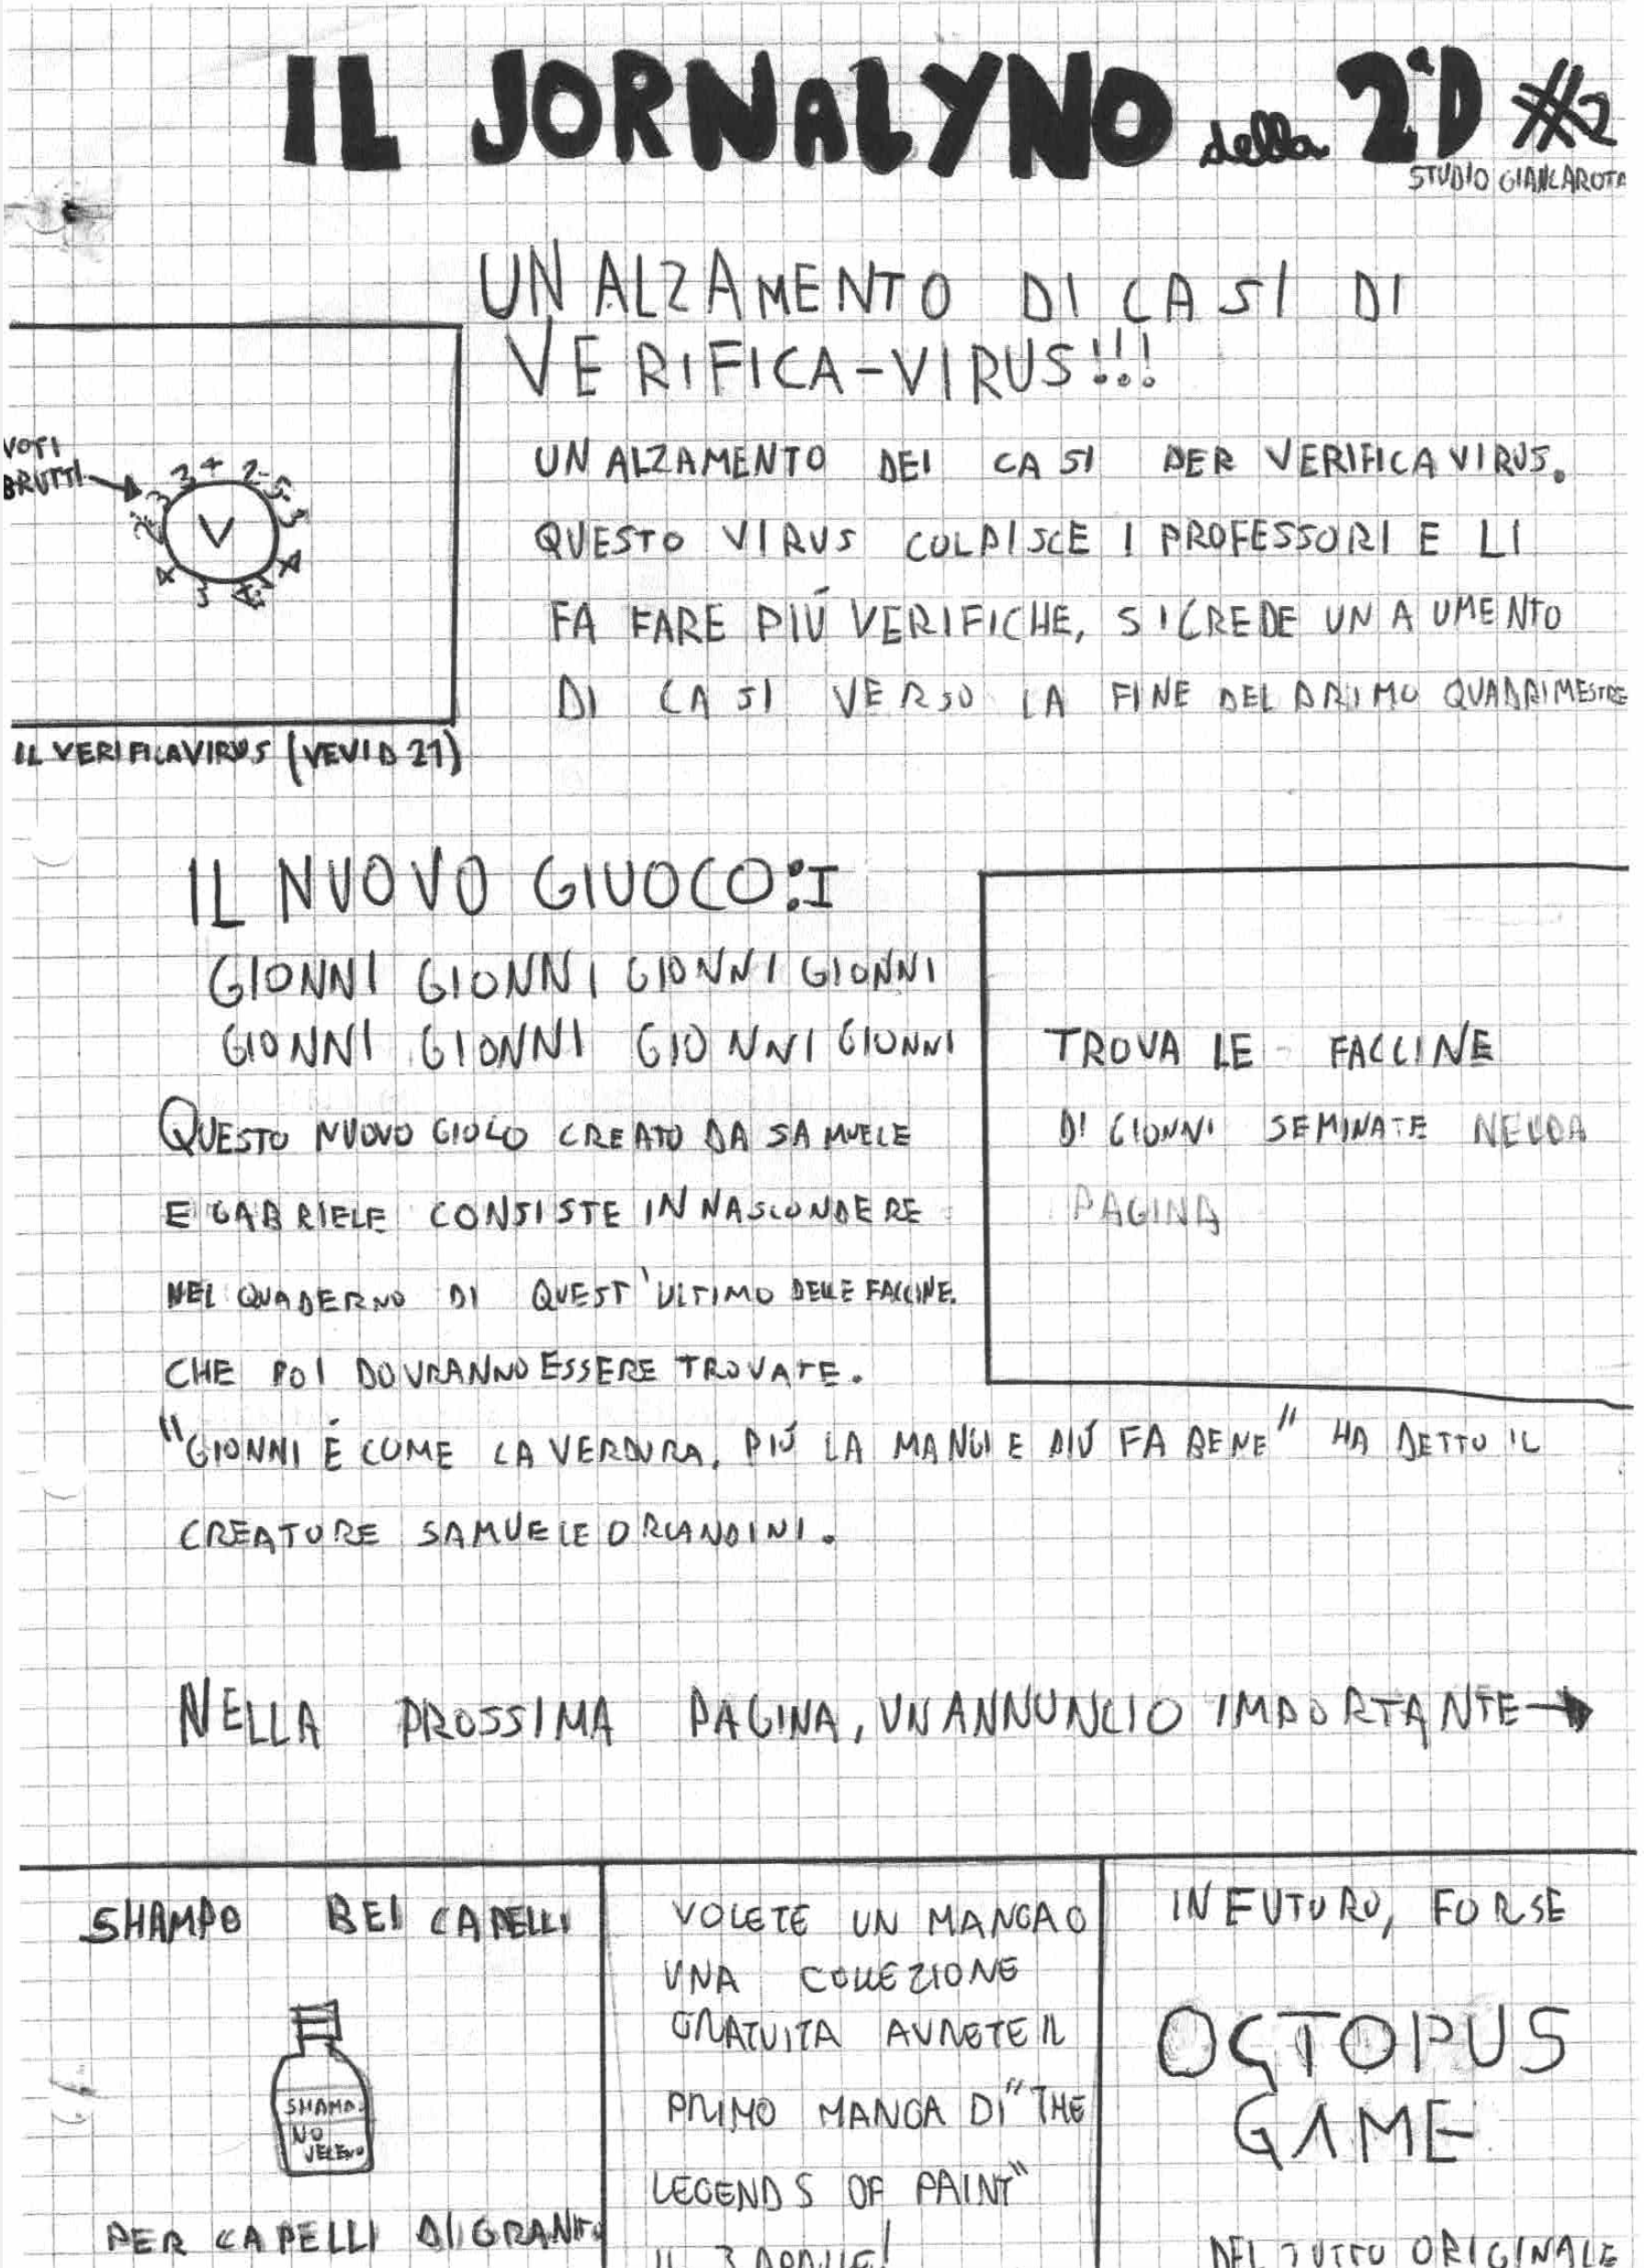 IL JORNALYNO della 2ªD #2
STUDIO GIANCAROTA
UN ALZAMENTO DI CASI DI
VERIFICA-VIRUS!!!
VOTI
BRUTTI
3 4 2- 5-
V
UN ALZAMENTO DEI CASI PER VERIFICAVIRUS.
QUESTO VIRUS COLPISCE I PROFESSORI E LI
FA FARE PIÚ VERIFICHE, SI CREDE UN AUMENTO
DI CASI VERSO LA FINE DEL PRIMO QUADRIMESTRE
IL VERIFICAVIRUS (VEVID 21)
IL NUOVO GIUOCO:I
GIONNI GIONNI GIONNI GIONNI
GIONNI GIONNI GIONNI GIONNI
QUESTO NUOVO GIOCO CREATO DA SAMUELE
E GABRIELE CONSISTE IN NASCONDERE
NEL QUADERNO DI QUEST'ULTIMO DELLE FACCINE.
CHE POI DOVRANNO ESSERE TROVATE.
"GIONNI É COME LA VERDURA, PIÚ LA MANGI E PIÚ FA BENE" HA DETTO IL
CREATORE SAMUELE ORLANDINI.
TROVA LE FACCINE
DI GIONNI SEMINATE NELLA
PAGINA
NELLA PROSSIMA PAGINA, UN ANNUNCIO IMPORTANTE→
SHAMPO BEI CAPELLI
SHAMPO
NO
VELENO
PER CAPELLI DI GRANITO
VOLETE UN MANGA O
UNA COLLEZIONE
GRATUITA AVRETE IL
PRIMO MANGA DI "THE
LEGENDS OF PAINT"
IL 3 APRILE!
IN FUTURO, FORSE
OCTOPUS
GAME
DEL TUTTO ORIGINALE